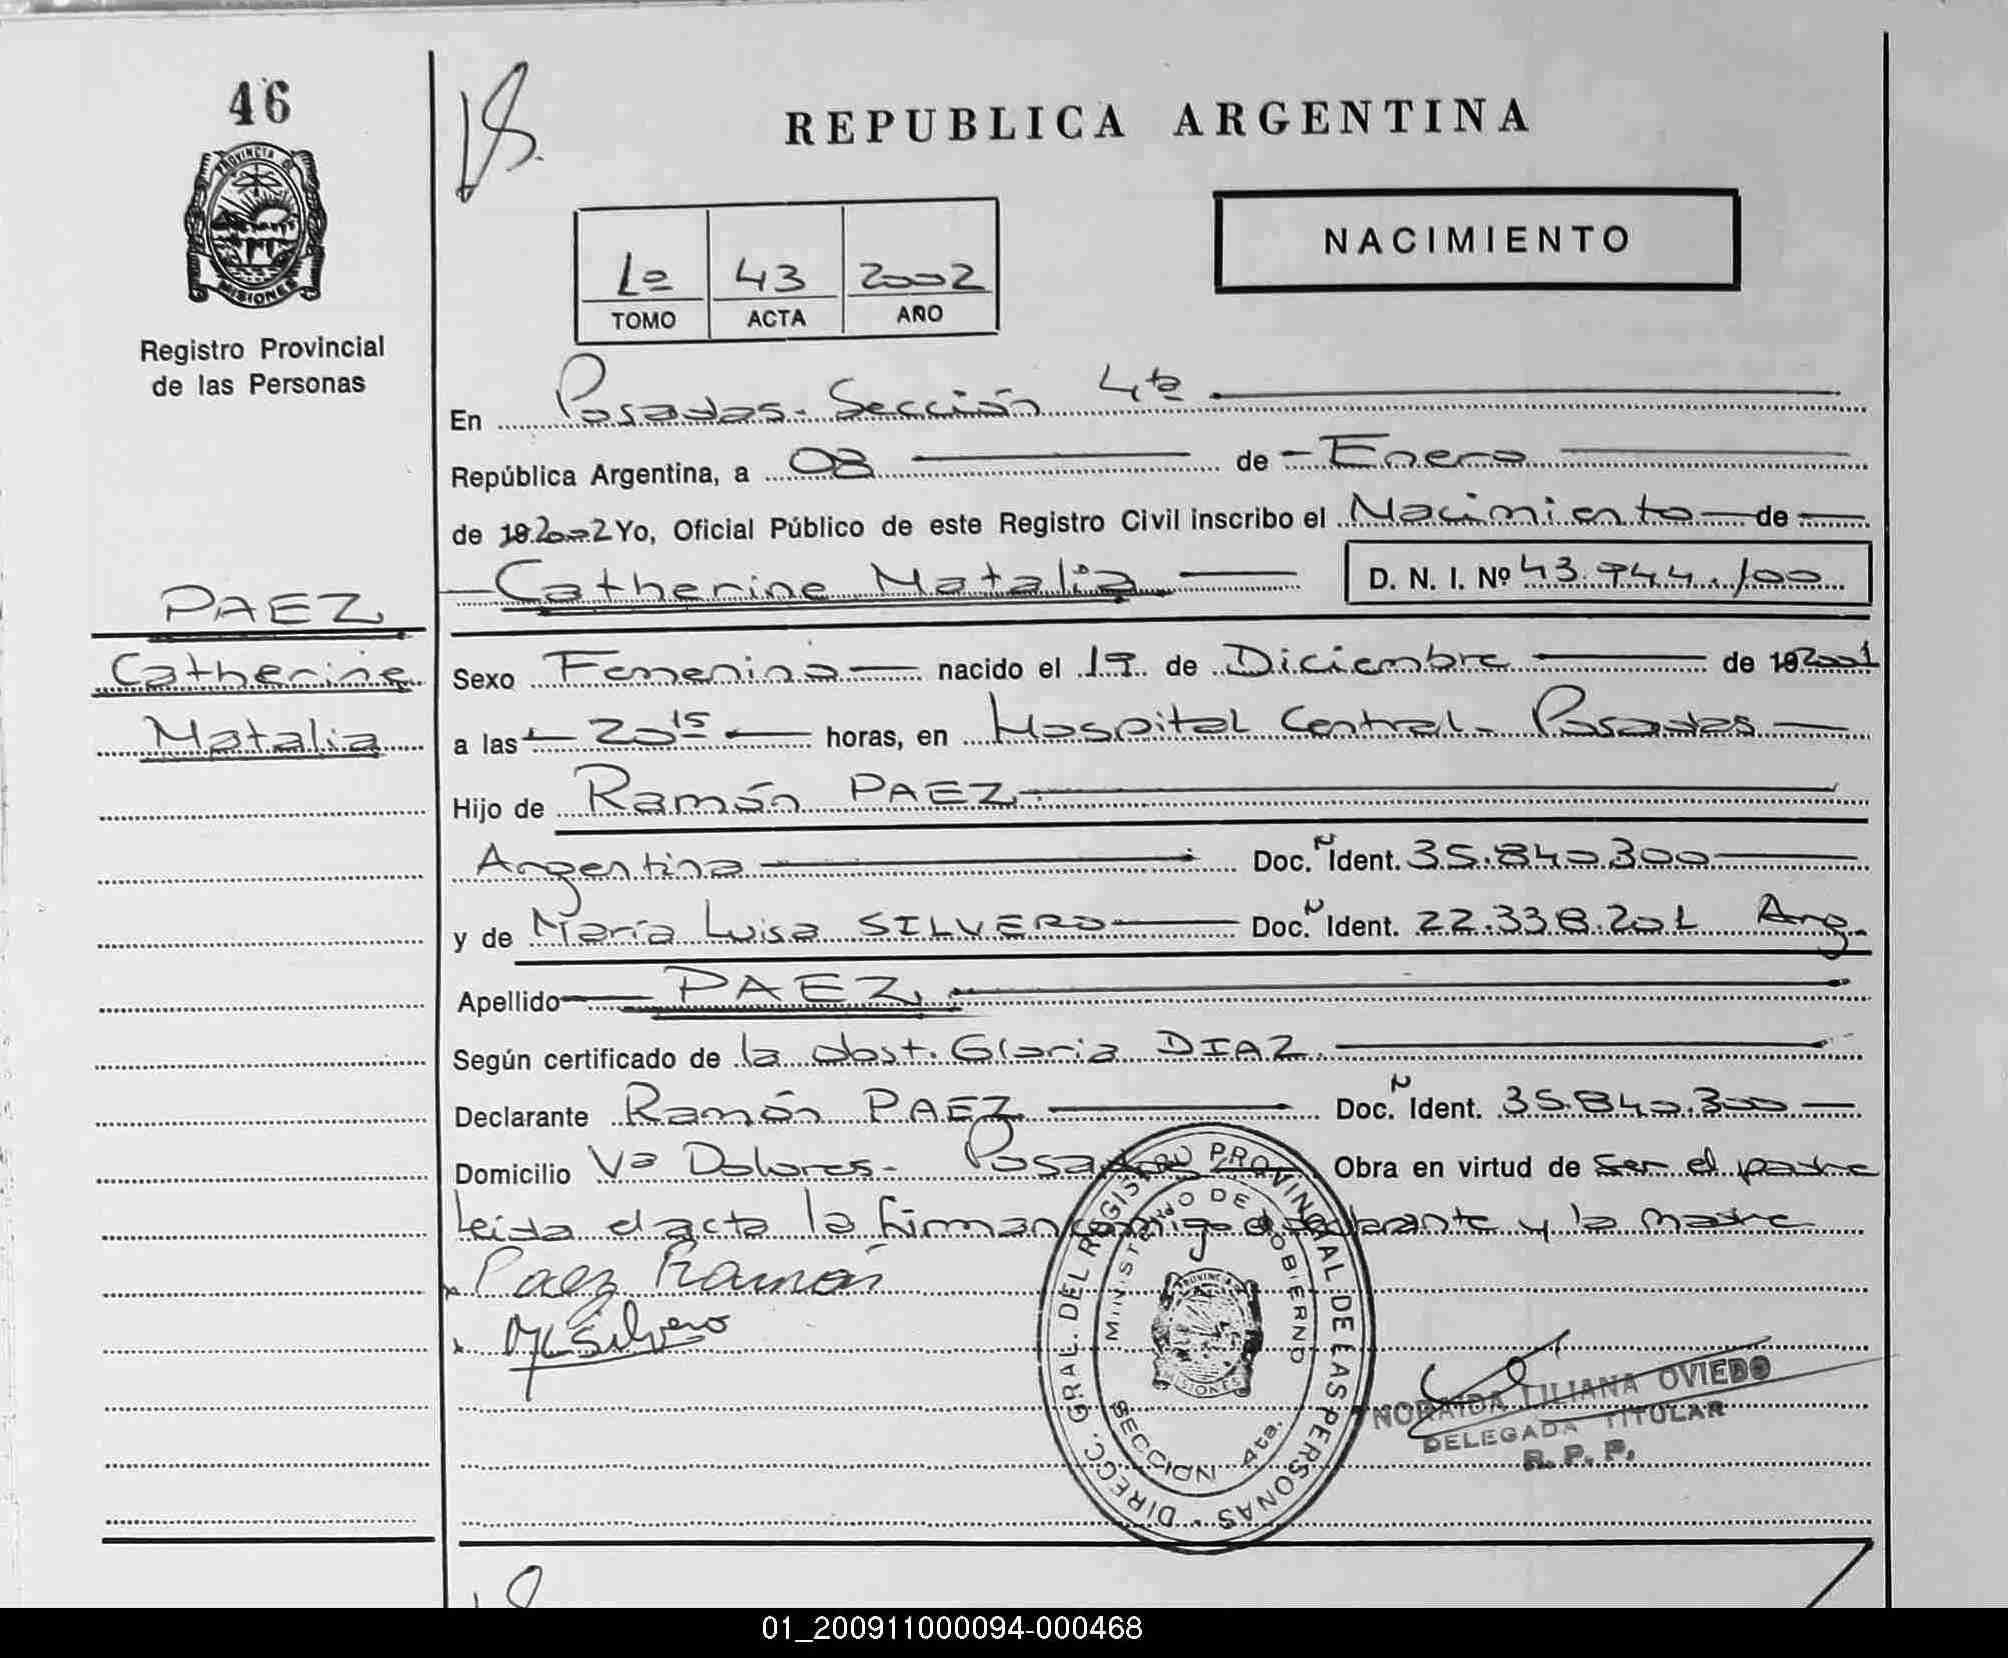 46
PROVINCIA DE
MISIONES
Registro Provincial
de las Personas
PAEZ
Catherine
Natalia
18.
REPUBLICA ARGENTINA
NACIMIENTO
1º 43 2002
TOMO ACTA AÑO
En Posadas- Sección 4ta
República Argentina, a 08 de Enero
de 19 2002 Yo, Oficial Público de este Registro Civil inscribo el Nacimiento de
Catherine Natalia D. N. I. Nº 43.944.100
Sexo Femenino nacido el 19 de Diciembre de 19 2001
a las 20 15 horas, en Hospital Central- Posadas
Hijo de Ramón PAEZ
Argentino Doc. Ident. 35.840.300
y de María Luisa SILVERO Doc. Ident. 22.338.201 Arg.
Apellido PAEZ
Según certificado de la obst. Gloria DIAZ
Declarante Ramón PAEZ Doc. Ident. 35.840.300
Domicilio Vª Dolores- Posadas Obra en virtud de ser el padre
Leída el acta la firman conmigo el declarante y la madre
Paez Ramón
ML Silvero
DIRECC. GRAL. DEL REGISTRO PROVINCIAL DE LAS PERSONAS
MINISTERIO DE GOBIERNO
SECCION 4ta.
MISIONES
NORAIDA LILIANA OVIEDO
DELEGADA TITULAR
R. P. P.
01_200911000094-000468